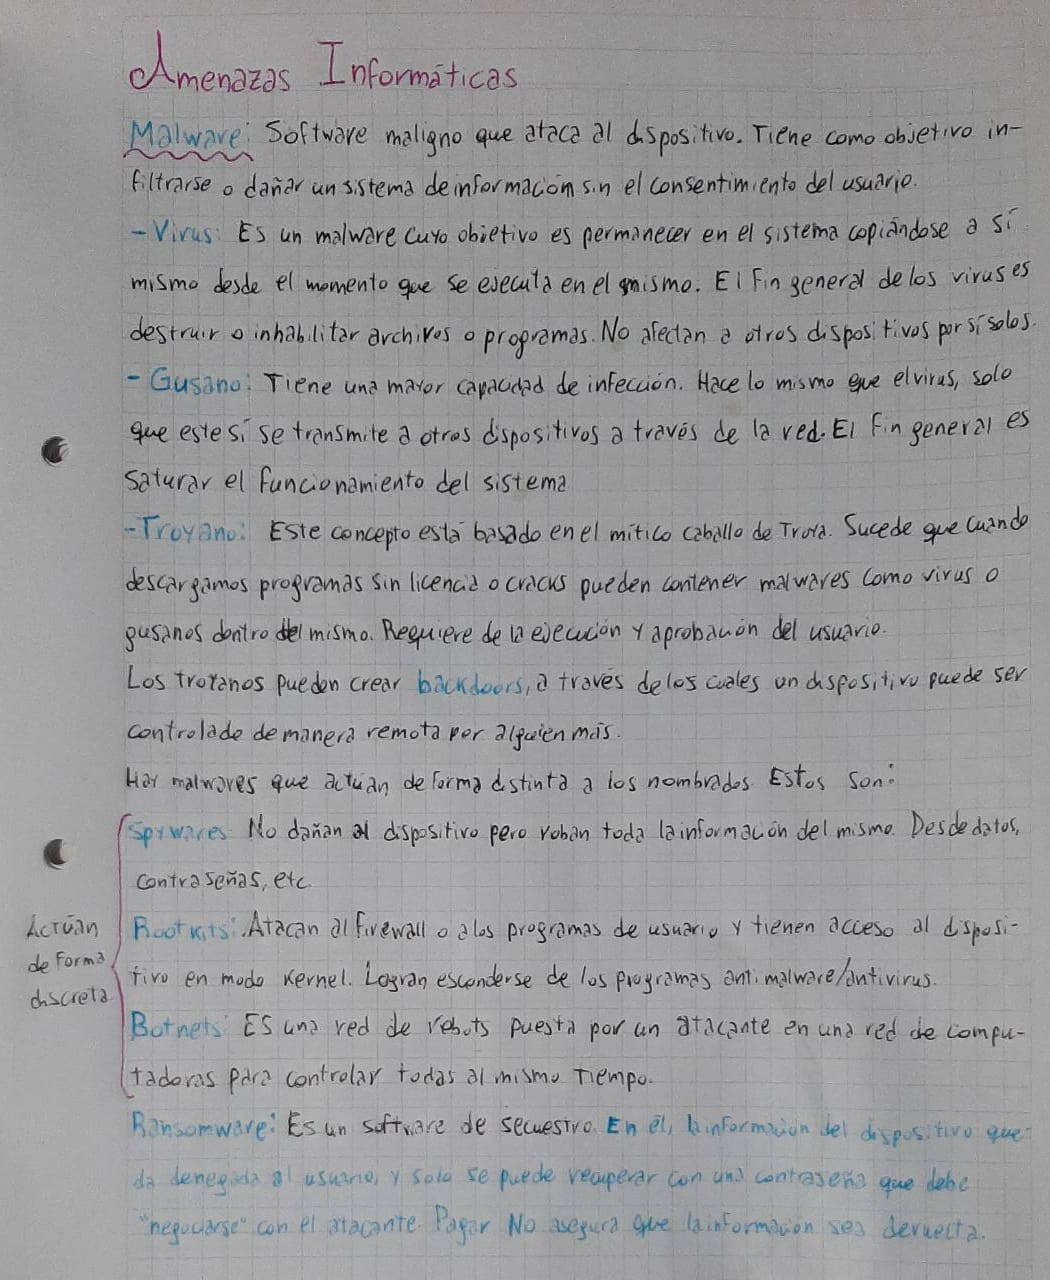 Amenazas Informáticas
Malware: Software maligno que ataca al dispositivo. Tiene como objetivo in-
filtrarse o dañar un sistema de información sin el consentimiento del usuario.
- Virus: Es un malware cuyo objetivo es permanecer en el sistema copiándose a sí
mismo desde el momento que se ejecuta en el mismo. El fin general de los virus es
destruir o inhabilitar archivos o programas. No afectan a otros dispositivos por sí solos.
- Gusano: Tiene una mayor capacidad de infección. Hace lo mismo que el virus, solo
que este sí se transmite a otros dispositivos a través de la red. El fin general es
saturar el funcionamiento del sistema
- Troyano: Este concepto está basado en el mítico caballo de Troya. Sucede que cuando
descargamos programas sin licencia o cracks pueden contener malwares como virus o
gusanos dentro del mismo. Requiere de la ejecución y aprobación del usuario.
Los troyanos pueden crear backdoors, a través de los cuales un dispositivo puede ser
controlado de manera remota por alguien más.
Hay malwares que actúan de forma distinta a los nombrados. Estos son:
Spywares No dañan al dispositivo pero roban toda la información del mismo. Desde datos,
contraseñas, etc.
Actúan
de forma
discreta.
Rootkits: Atacan al firewall o a los programas de usuario y tienen acceso al disposi-
tivo en modo Kernel. Logran esconderse de los programas antimalware/antivirus.
Botnets: Es una red de robots puesta por un atacante en una red de compu-
tadoras para controlar todas al mismo tiempo.
Ransomware: Es un software de secuestro. En él, la información del dispositivo que-
da denegada al usuario, y solo se puede recuperar con una contraseña que debe
"negociarse" con el atacante. Pagar NO asegura que la información sea devuelta.